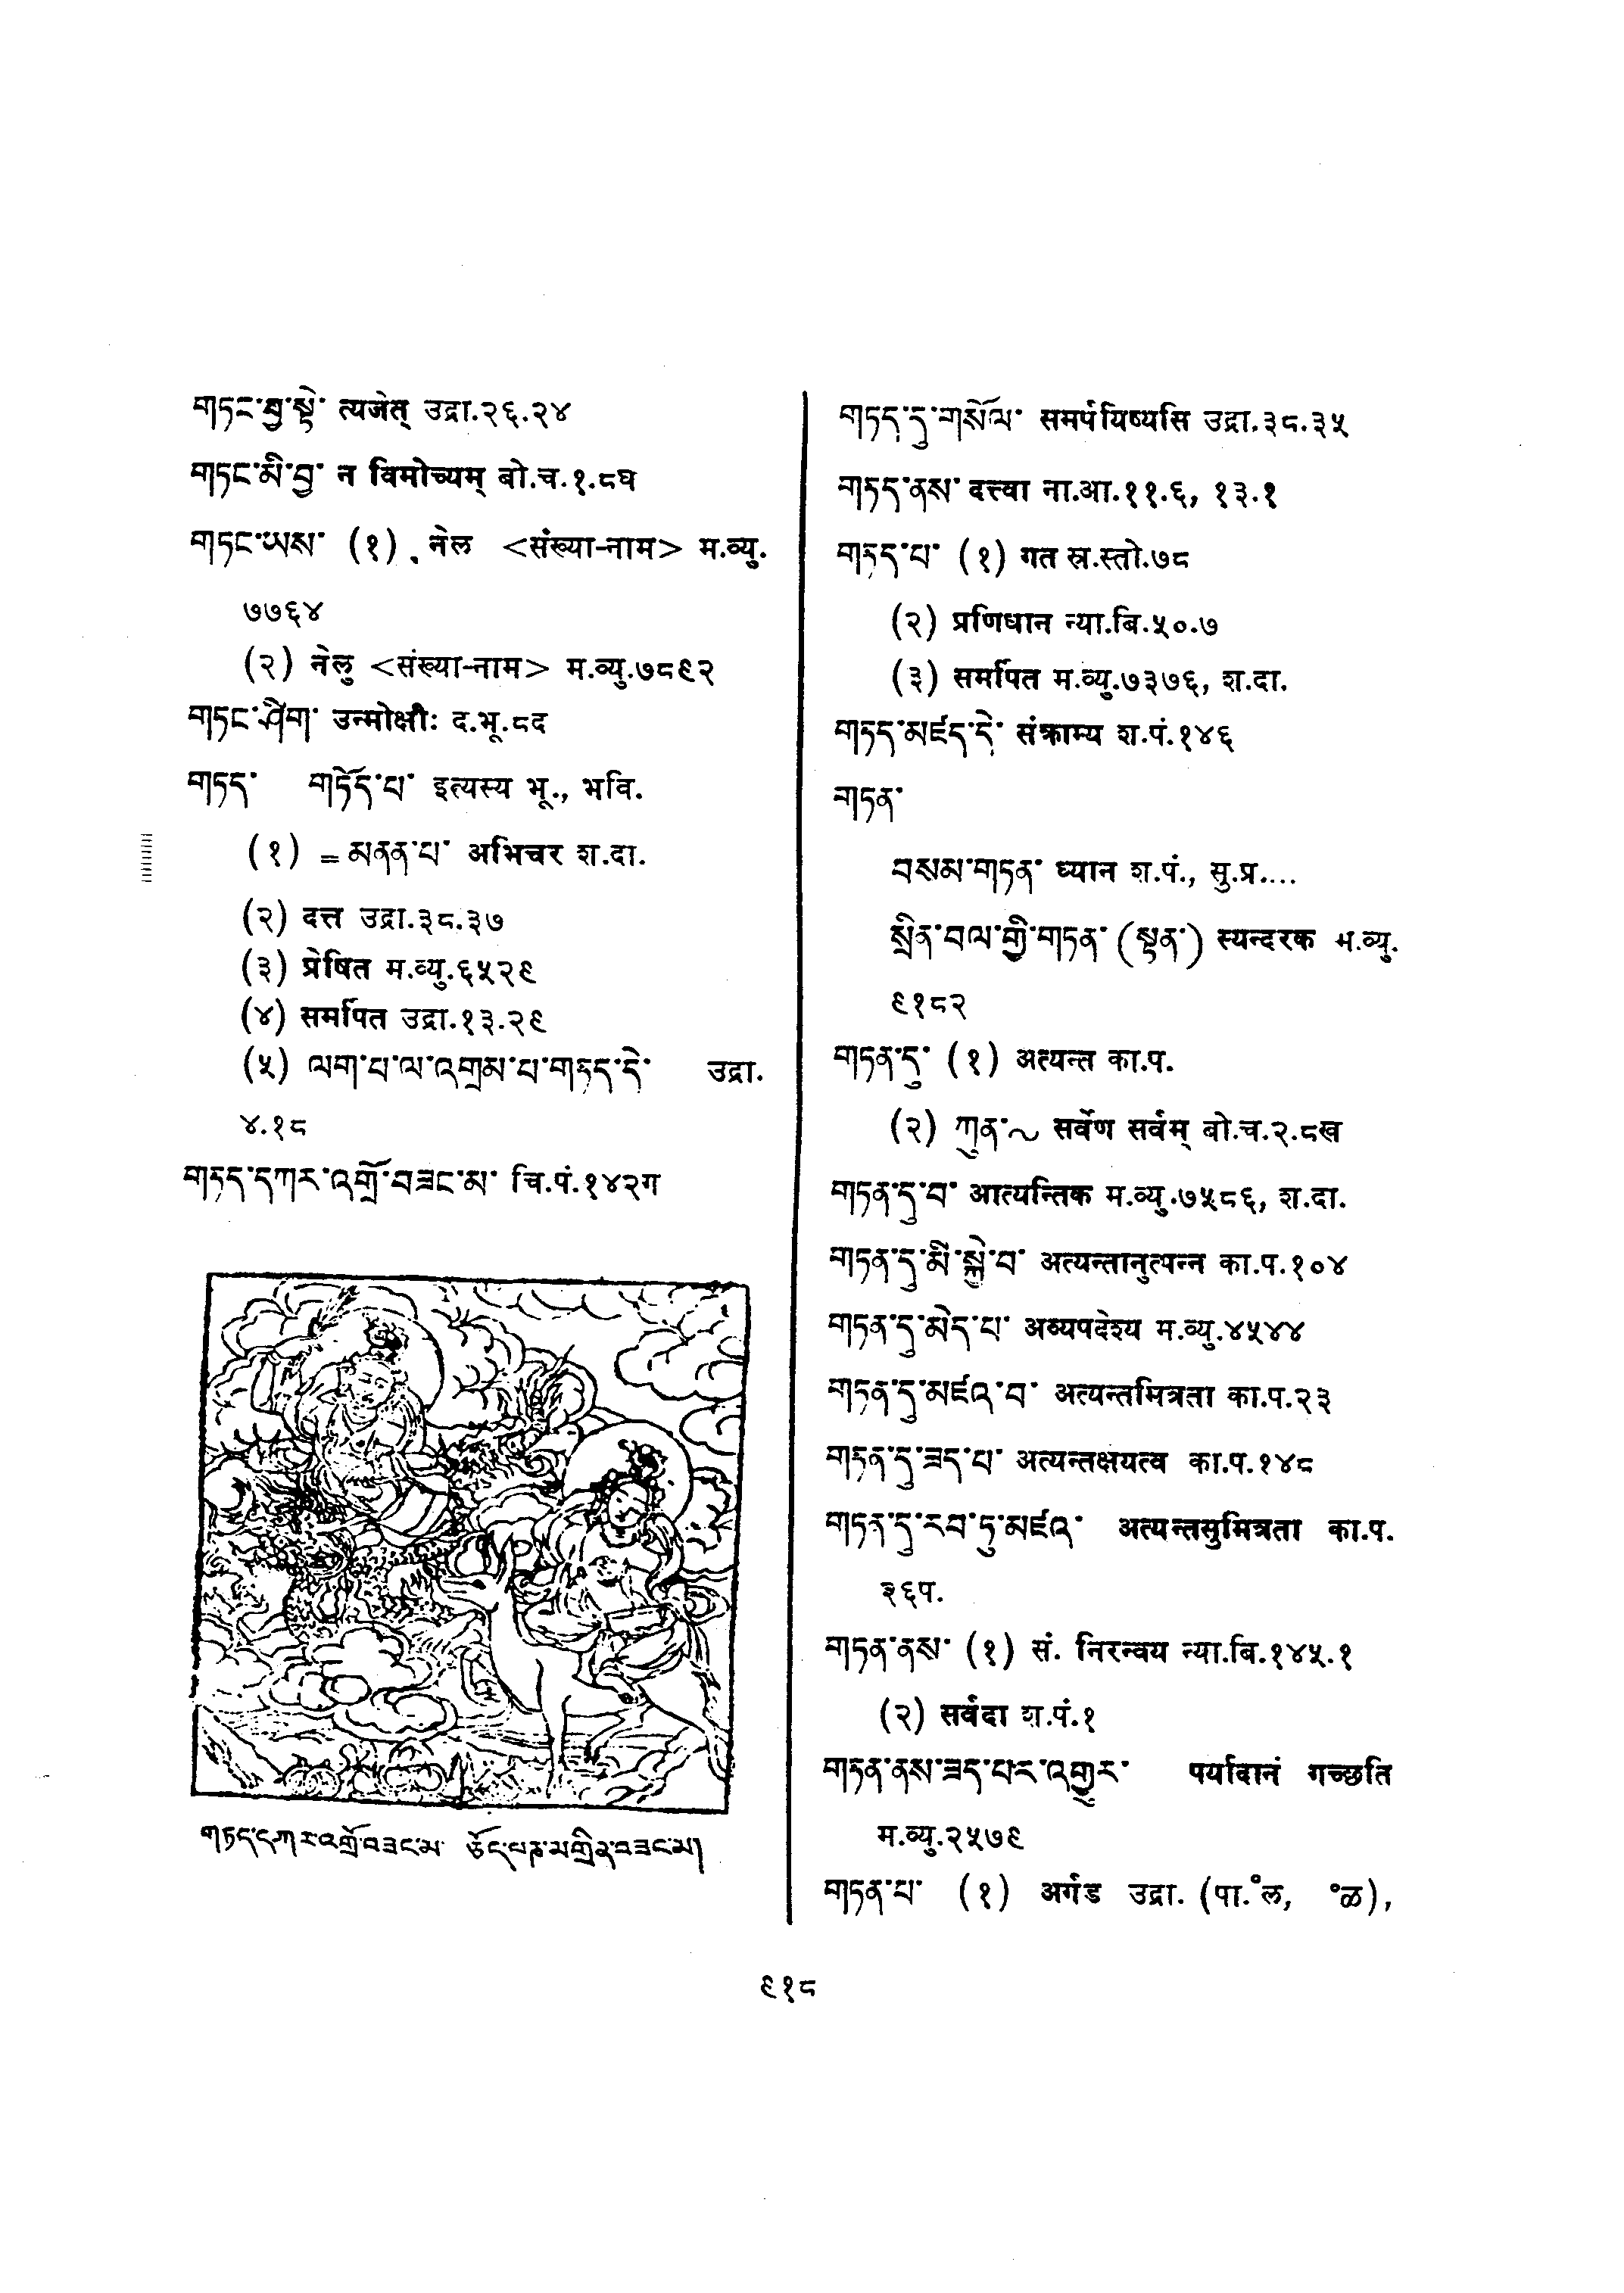 གཏང་བྱ་སྟེ་ त्यजेत् उद्रा.२६.२४
གཏང་མི་བྱ་ न विमोच्यम् बो.च.१.८घ
གཏང་ཡས་ (१) नेल <संख्या-नाम> म.व्यु.
७७६४
(२) नेलु <संख्या-नाम> म.व्यु.७८९२
གཏང་ཤིག་ उन्मोक्षीः द.भू.८द
གཏད་ གཏོད་པ་ इत्यस्य भू., भवि.
(१) = མནན་པ་ अभिचर श.दा.
(२) दत्त उद्रा.३८.३७
(३) प्रेषित म.व्यु.६५२९
(४) समर्पित उद्रा.१३.२९
(५) ལག་པ་ལ་འགྲམ་པ་གཏད་དེ་ उद्रा.
४.१८
གཏད་དཀར་འགྲོ་བཟང་མ་ चि.पं.१४२ग
གཏད་དཀར་འགྲོ་བཟང་མ་ ཅོད་པཎ་མགྲིན་བཟང་མ།
གཏད་དུ་གསོལ་ समर्पयिष्यसि उद्रा.३८.३५
གཏད་ནས་ दत्त्वा ना.आ.११.६, १३.१
གཏད་པ་ (१) गत स्र.स्तो.७८
(२) प्रणिधान न्या.बि.५०.७
(३) समर्पित म.व्यु.७३७६, श.दा.
གཏད་མཛད་དེ་ संक्राम्य श.पं.१४६
གཏན་
བསམ་གཏན་ ध्यान श.पं., सु.प्र....
སྲིན་བལ་གྱི་གཏན་ (སྟན་) स्यन्दरक म.व्यु.
९१८२
གཏན་དུ་ (१) अत्यन्त का.प.
(२) ཀུན་~ सर्वेण सर्वम् बो.च.२.८ख
གཏན་དུ་བ་ आत्यन्तिक म.व्यु.७५८६, श.दा.
གཏན་དུ་མི་སྐྱེ་བ་ अत्यन्तानुत्पन्न का.प.१०४
གཏན་དུ་མེད་པ་ अव्यपदेश्य म.व्यु.४५४४
གཏན་དུ་མཛའ་བ་ अत्यन्तमित्रता का.प.२३
གཏན་དུ་ཟད་པ་ अत्यन्तक्षयत्व का.प.१४८
གཏན་དུ་རབ་ཏུ་མཛའ་ अत्यन्तसुमित्रता का.प.
३६प.
གཏན་ནས་ (१) सं. निरन्वय न्या.बि.१४५.१
(२) सर्वदा श.पं.१
གཏན་ནས་ཟད་པར་འགྱུར་ पर्यादानं गच्छति
म.व्यु.२५७९
གཏན་པ་ (१) अर्गड उद्रा. (पा.॰ल, ॰ळ),
९१८